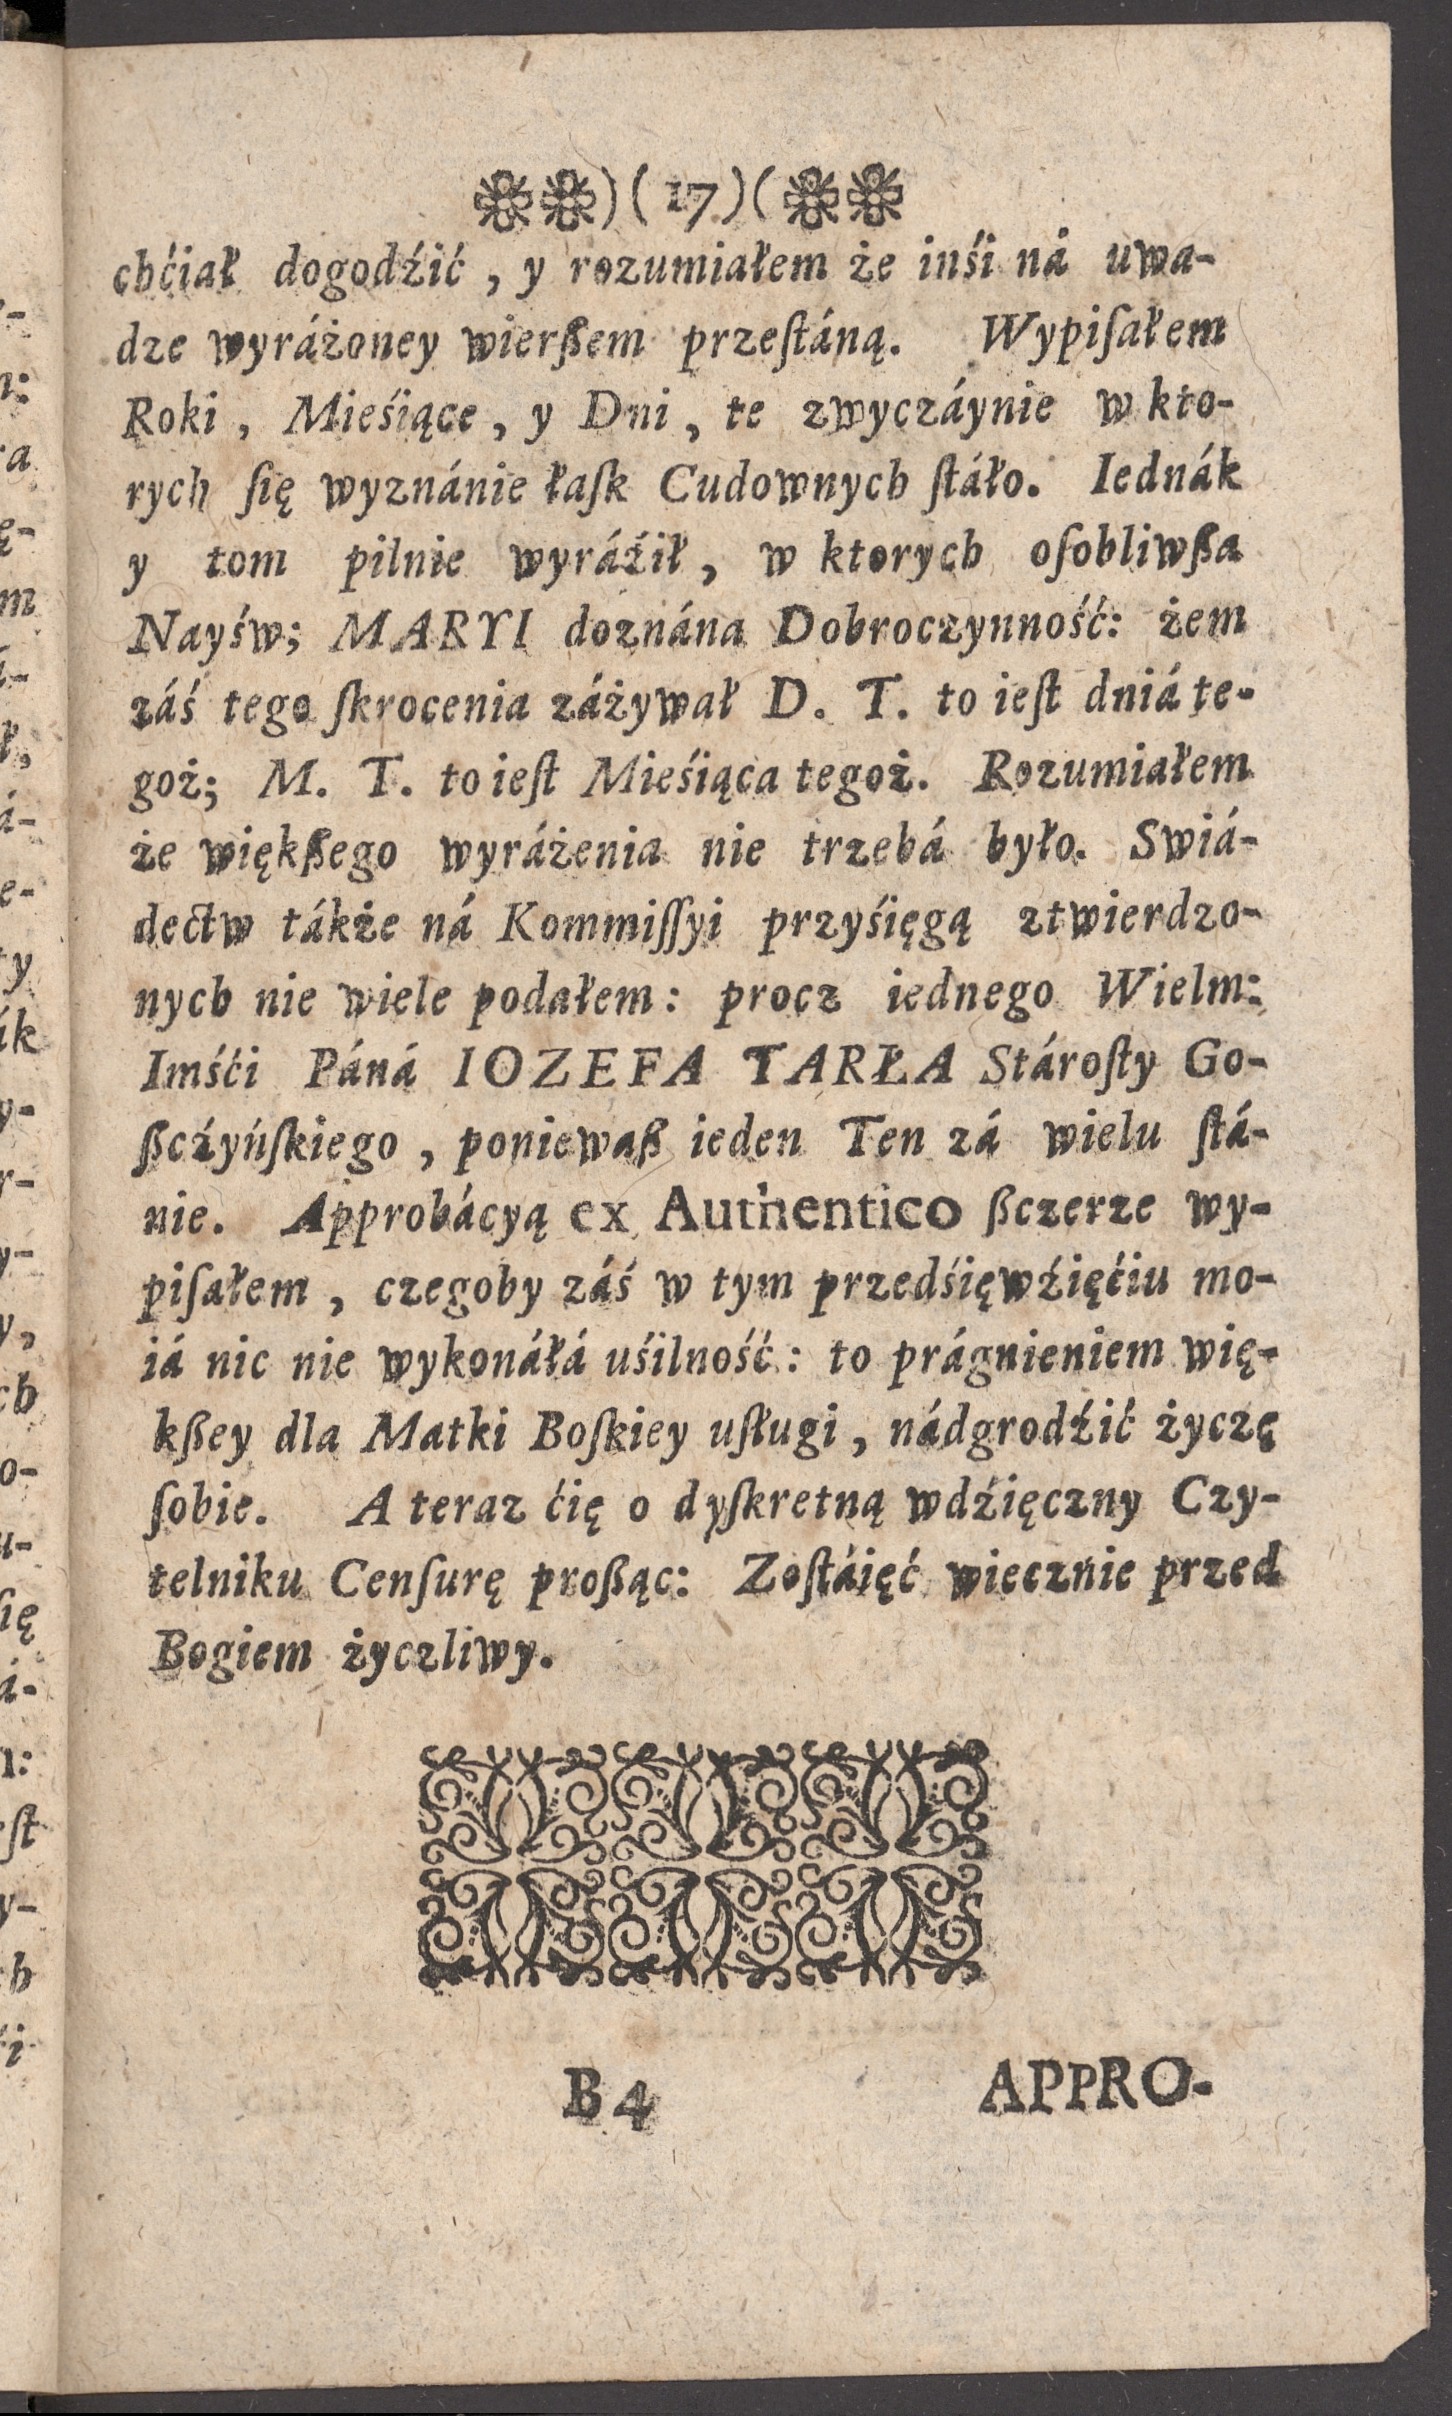 )( 17 )(
chćiał dogodźić, y rozumiałem że inśi ná uwa-
dze wyráżoney wierßem przeſtáną. Wypiſałem
Roki, Mieśiące, y Dni, te zwyczáynie w kto-
rych ſię wyznánie łaſk Cudownych ſtáło. Iednák
y tom pilnie wyráźił, w ktorych oſobliwßa
Nayśw; MARYI doznána Dobroczynność: żem
záś tego ſkrocenia záżywał D. T. to ieſt dniá te-
goż; M. T. to ieſt Mieśiąca tegoż. Rozumiałem
że więkßego wyráżenia nie trzebá było. Swiá-
dectw tákże ná Kommiſſyi przyśięgą ztwierdzo-
nych nie wiele podałem: procz iednego Wielm:
Imśći Páná IOZEFA TARŁA Stároſty Go-
ßczyńſkiego, poniewaß ieden Ten zá wielu ſtá-
nie. Approbácyą ex Authentico ßczerze wy-
piſałem, czegoby záś w tym przedśięwźięćiu mo-
iá nic nie wykonáłá uśilność: to prágnieniem wię-
kßey dla Matki Boſkiey uſługi, nádgrodźić życzę
ſobie. A teraz ćię o dyſkretną wdźięczny Czy-
telniku Cenſurę proßąc: Zoſtáięć wiecznie przed
Bogiem życzliwy.
B4 APPRO-